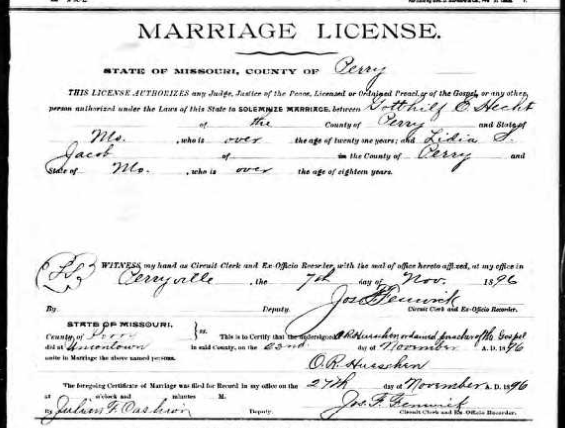 MARRIAGE LICENSE.
STATE OF MISSOURI, COUNTY OF Perry
THIS LICENSE AUTHORIZES any Judge, Justice of the Peace, Licensed or Ordained Preacher of the Gospel, or any other
person authorized under the Laws of this State to SOLEMNIZE MARRIAGE, between Gotthilf E. Hecht
of the County of Perry and State of
Mo. , who is over the age of twenty one years; and Lidia S.
Jacob of in the County of Perry and
State of Mo. , who is over the age of eighteen years.
WITNESS my hand as Circuit Clerk and Ex-Officio Recorder, with the seal of office hereto affixed, at my office in
Perryville , the 7th day of Nov. 1896
Jos. F. Fenwick
By Deputy. Circuit Clerk and Ex-Officio Recorder.
STATE OF MISSOURI,
County of Perry ss. This is to Certify that the undersigned O.R. Hueschen ordained preacher of the Gospel
did at Uniontown in said County, on the 22nd day of November A. D. 1896
unite in Marriage the above named persons.
O. R. Hueschen
The foregoing Certificate of Marriage was filed for Record in my office on the 27th day of November A. D. 1896
at o'clock and minutes M.
Jos. F. Fenwick
By Julian F. Deputy. Circuit Clerk and Ex Officio Recorder.